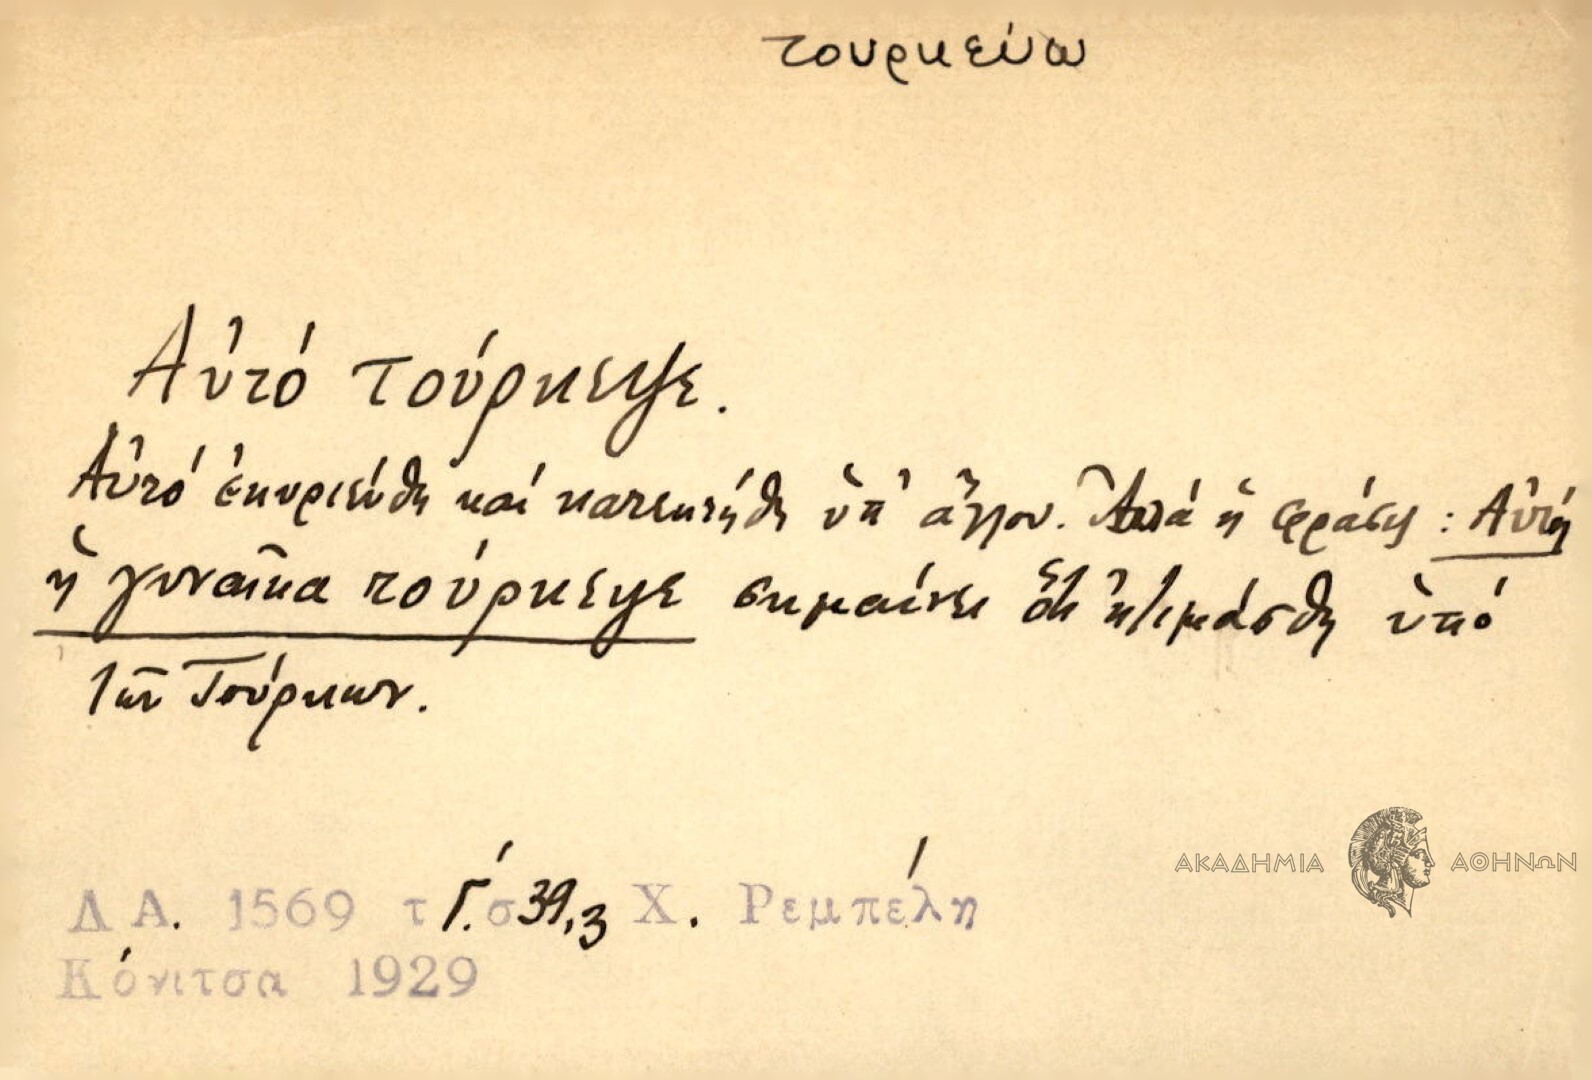 τουρκεύω
Αὐτό τούρκεψε.
Αὐτό ἐκυριεύθη καί κατεκτήθη ὑπ' ἄλλου. Ἀλλά ἡ φράσις : Αὐτή
ἡ γυναῖκα τούρκεψε σημαίνει ὅτι ἠτιμάσθη ὑπό
τῶν Τούρκων.
ΑΚΑΔΗΜΙΑ ΑΘΗΝΩΝ
Λ Α. 1569 τ Γ΄. σ 39,3 Χ. Ρεμπέλη
Κόνιτσα 1929